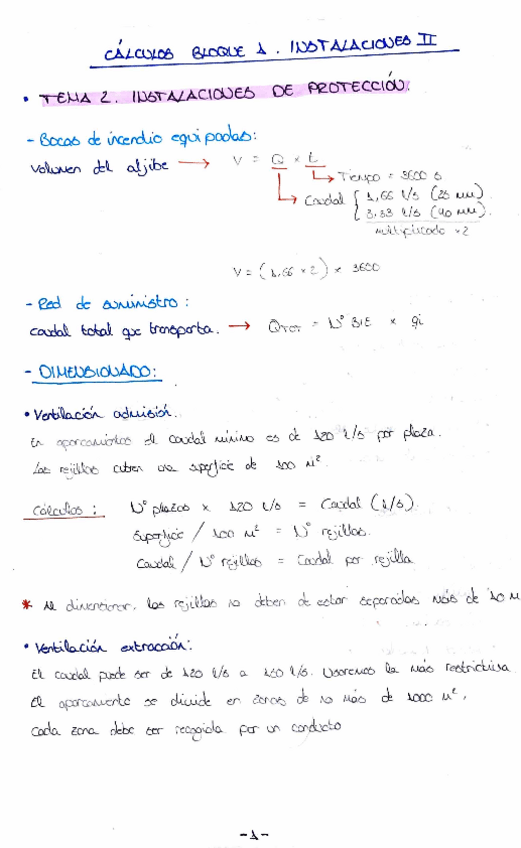 CÁLCULOS BLOQUE 1. INSTALACIONES II
• TEMA 2. INSTALACIONES DE PROTECCIÓN:
- Bocas de incendio equipadas:
Volumen del aljibe → V = Q × t
→ Tiempo = 3600 s
→ Caudal { 1,66 l/s (25 mm).
3,33 l/s (40 mm).
multiplicado × 2
V = (1,66 × 2) × 3600
- Red de suministro:
caudal total que transporta. → QTOT = Nº BIE × qi
- DIMENSIONADO:
• Ventilación admisión.
En aparcamientos el caudal mínimo es de 120 l/s por plaza.
Las rejillas cubren una superficie de 100 m².
Cálculos: Nº plazas × 120 l/s = Caudal (l/s).
Superficie / 100 m² = Nº rejillas.
Caudal / Nº rejillas = Caudal por rejilla
* Al dimensionar, las rejillas no deben de estar separadas más de 10 m
• Ventilación extracción:
El caudal puede ser de 120 l/s a 150 l/s. Usaremos la más restrictiva
El aparcamiento se divide en zonas de no más de 1000 m²,
Cada zona debe ser recogida por un conducto
-1-